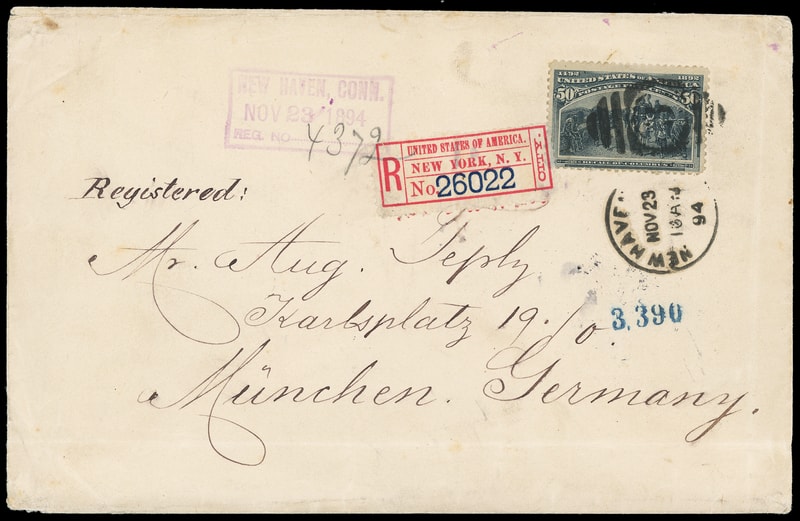 NEW HAVEN, CONN.
NOV 23 1894
REG. NO
4372
1492 UNITED STATES OF AMERICA 1892
50 POSTAGE FIFTY CENTS 50
RECALL OF COLUMBUS
UNITED STATES OF AMERICA.
R
NEW YORK, N. Y.
No. 26022
Registered:
NEW HAVEN
NOV 23
94
Mr. Aug. Seply
Karlsplatz 19./0.
3,390
München. Germany.